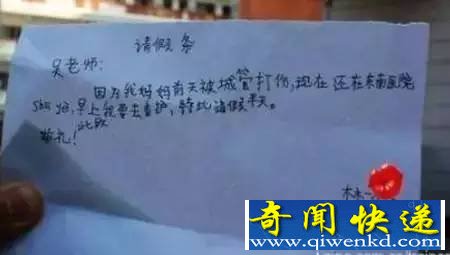 请假条
吴老师:
因为我妈妈前天被城管打伤,现在还在东南医院
,早上我要去看护,特此请假半天。
此致
敬礼!
林
奇闻快递
www.qiwenkd.com